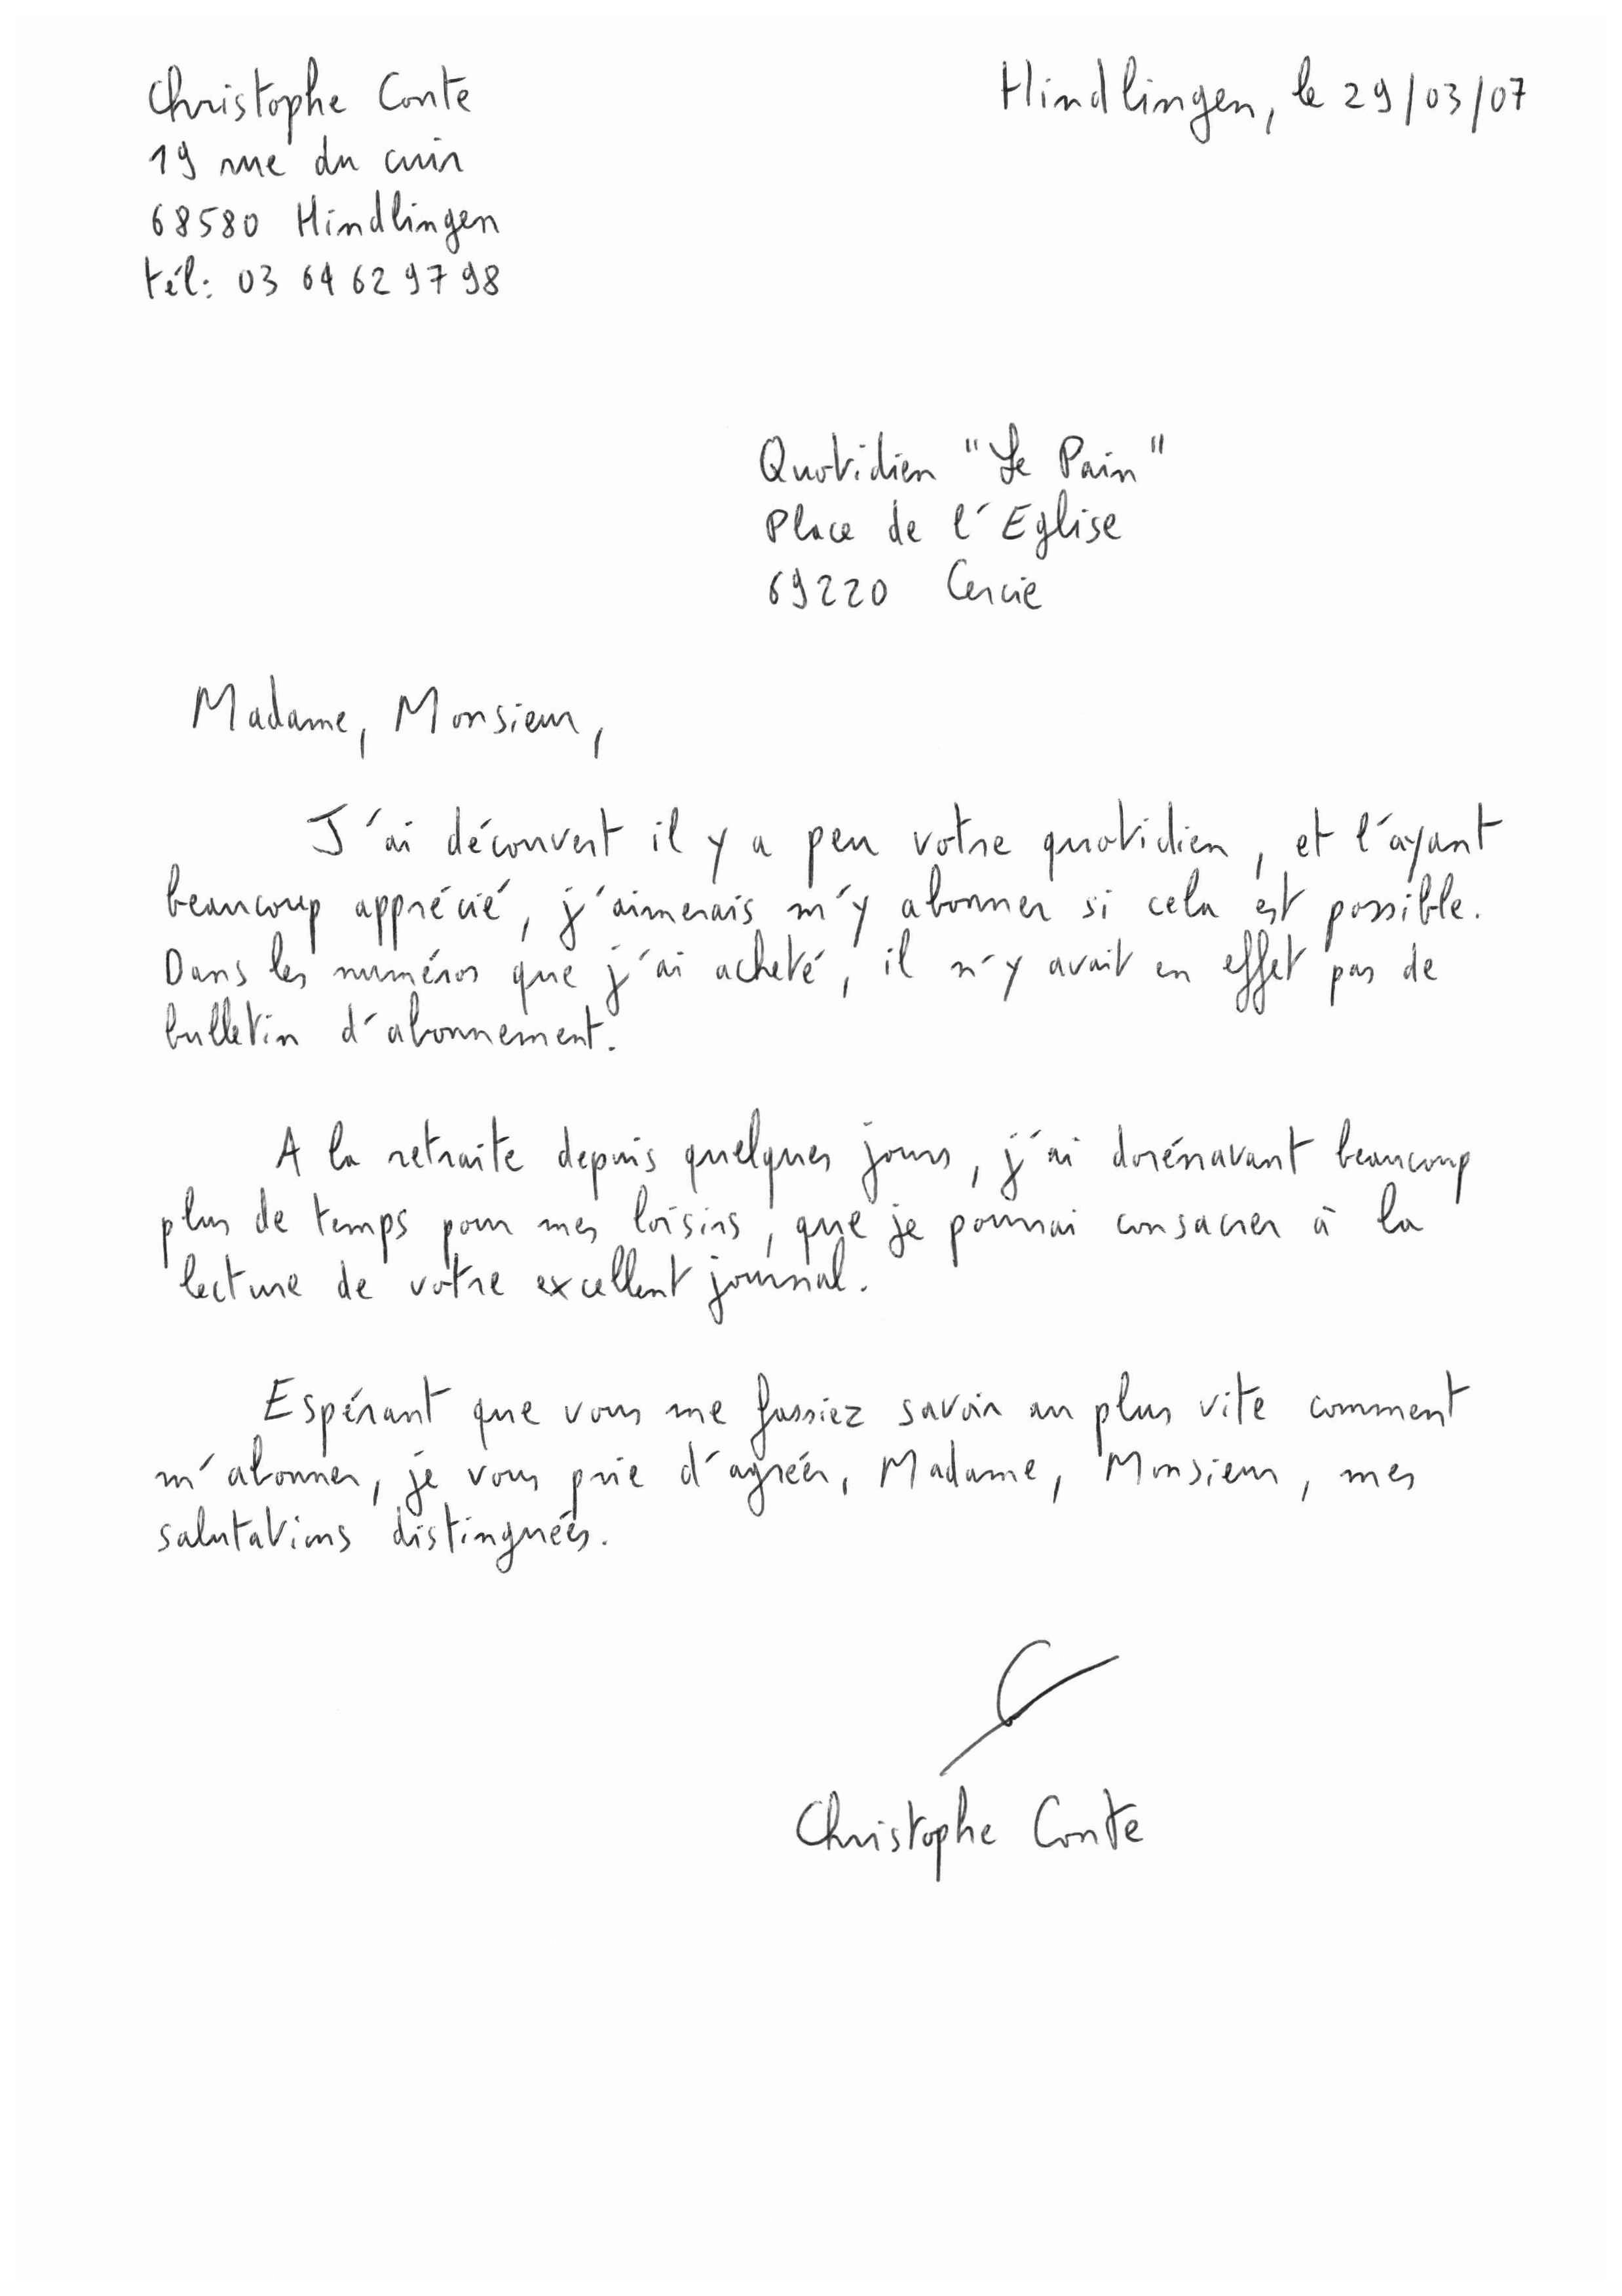 Christophe Conte
Hindlingen, le 29/03/07
19 rue du cuir
68580 Hindlingen
tél: 03 64 62 97 98
Quotidien "Le Pain"
Place de l'Eglise
69220 Cercie
Madame, Monsieur,
J'ai découvert il y a peu votre quotidien, et l'ayant
beaucoup apprécié, j'aimerais m'y abonner si cela est possible.
Dans les numéros que j'ai acheté, il n'y avait en effet pas de
bulletin d'abonnement.
A la retraite depuis quelques jours, j'ai dorénavant beaucoup
plus de temps pour mes loisirs, que je pourrai consacrer à la
lecture de votre excellent journal.
Espérant que vous me fassiez savoir au plus vite comment
m'abonner, je vous prie d'agréer, Madame, Monsieur, mes
salutations distinguées.
Christophe Conte